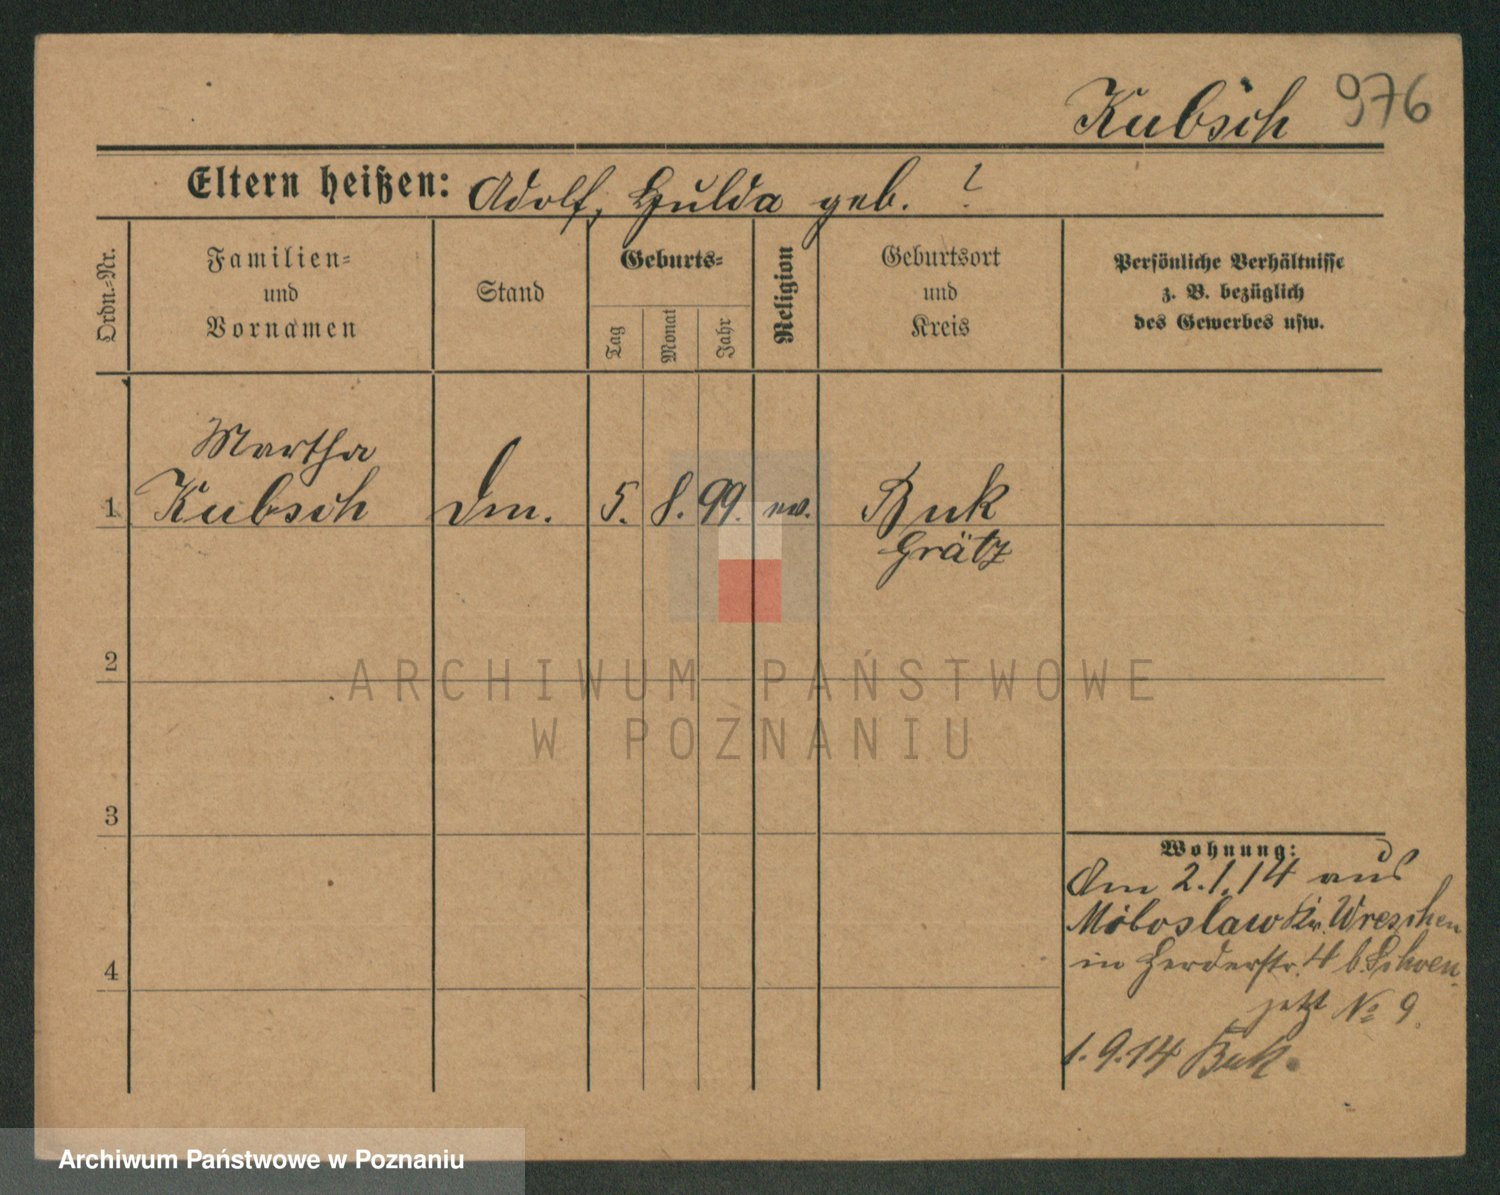 Kubsch 976
Eltern heißen: Adolf, Hulda geb. ?
Ordn.-Nr.
Familien-
und
Vornamen
Stand
Geburts-
Tag
Monat
Jahr
Religion
Geburtsort
und
Kreis
Persönliche Verhältnisse
z. B. bezüglich
des Gewerbes usw.
Martha
1 Kubsch 5. 8. 99. ev. Buk
Grätz
2
3
4
ARCHIWUM PAŃSTWOWE
W POZNANIU
Wohnung:
Am 2.1.14 aus
Miloslaw Kr. Wreschen
in Herderstr. 4 b. Schoen
jetzt No 9.
1.9.14 Buk.
Archiwum Państwowe w Poznaniu